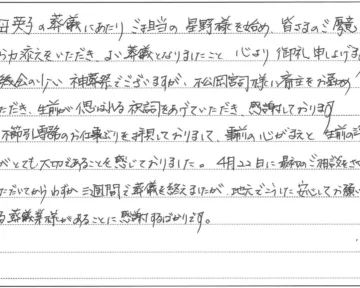 母英子の葬儀にあたり ご担当の星野様を始め、皆さまのご
お力添えをいただき、よい葬儀となりましたこと 心より御礼申しあげま
神葬祭でございますが、松岡宮司様に斎主をお
ただき、生前が偲ばれる祝詞をあげていただき、感謝しております
のお仕事ぶりを拝見しておりまして、事前の心がまえと 生前の
がとても大切であることを感じておりました。4月22日に最初のご相談をさせ
ただいてからわずか三週間で葬儀を終えましたが、地元でこうした安心してお願い
る葬儀屋様があることに感謝するばかりです。